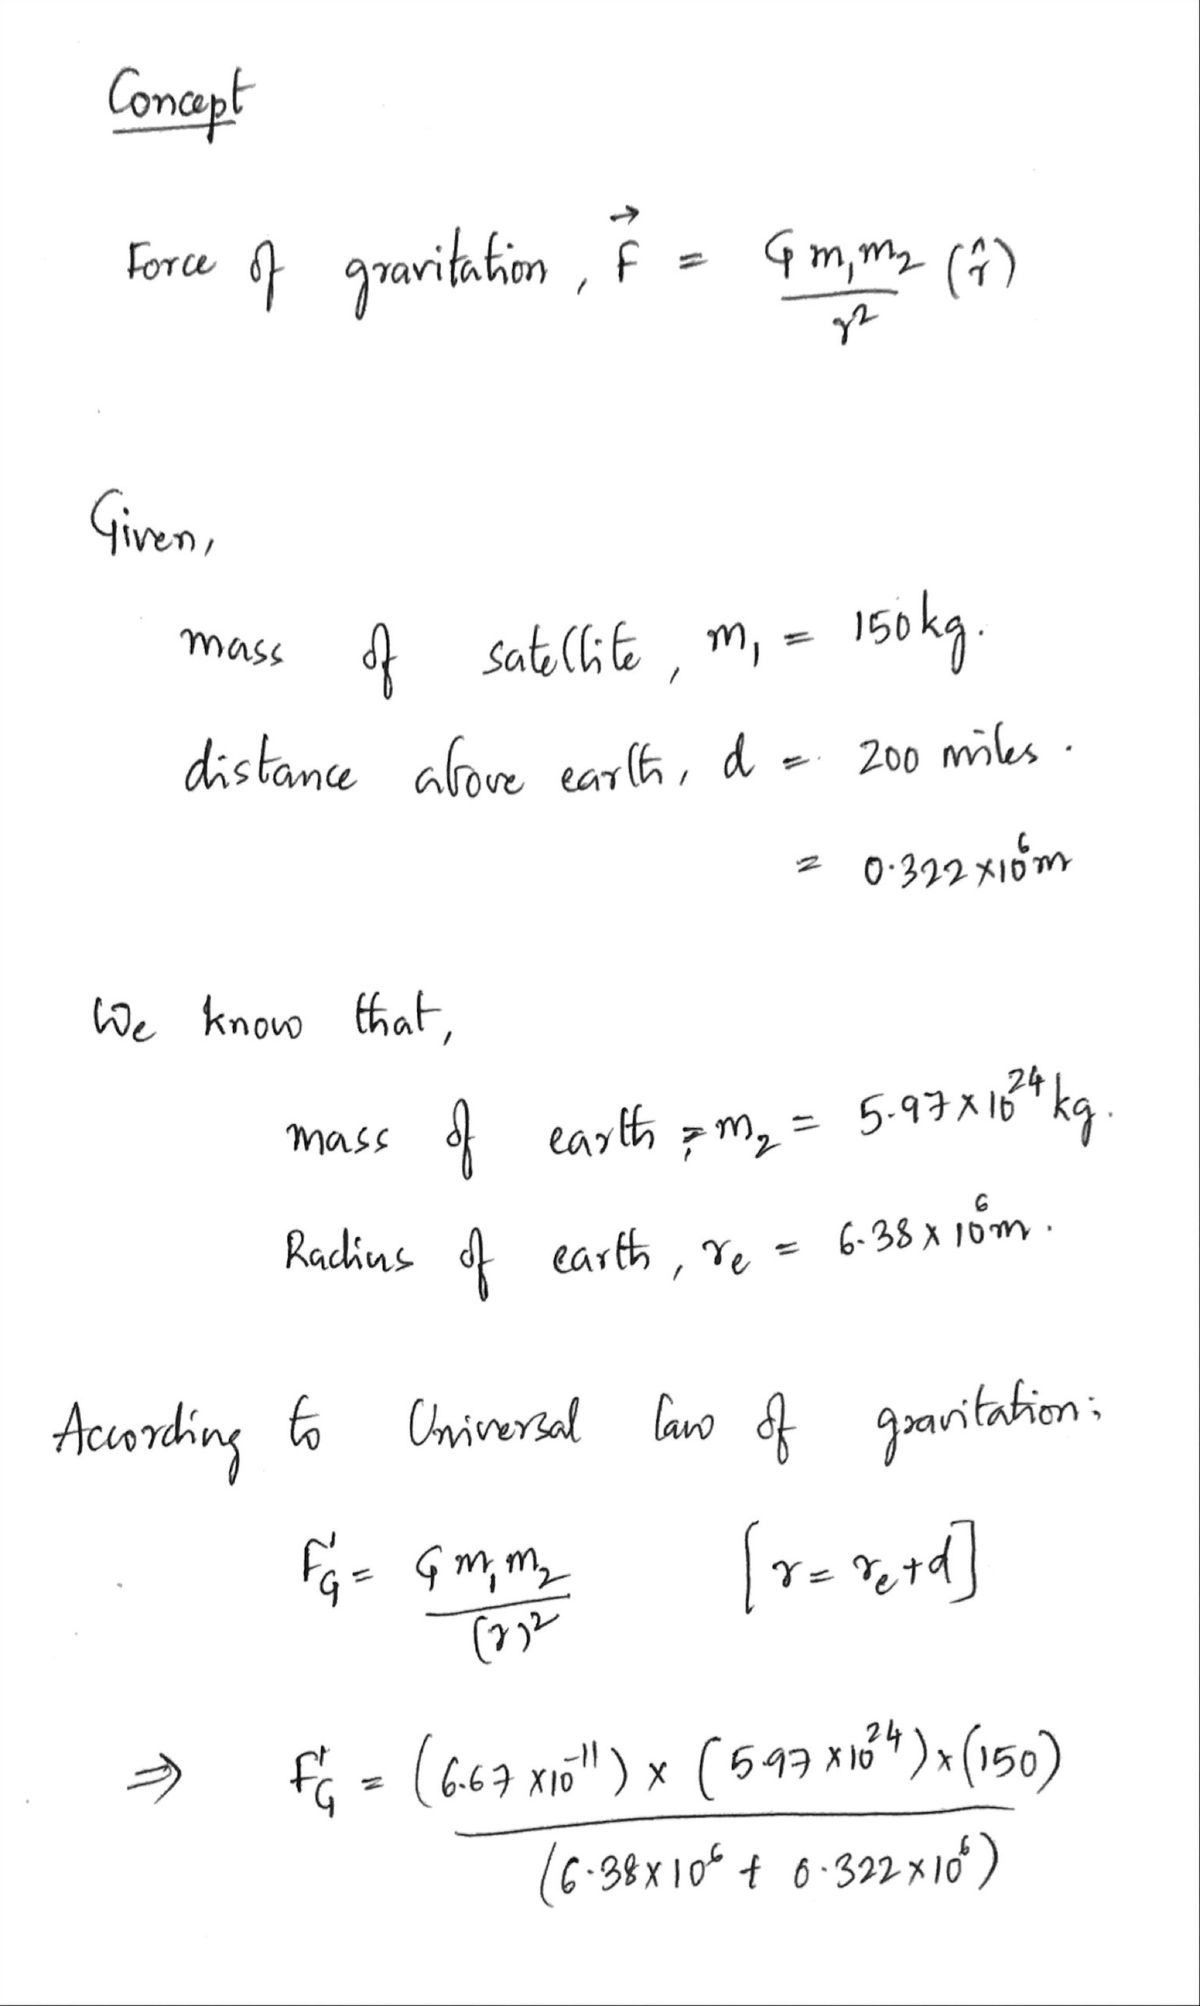 Concept
Force of gravitation, F⃗ = G m₁m₂ / r² (r̂)
Given,
mass of satellite, m₁ = 150 kg.
distance above earth, d = 200 miles.
= 0.322 × 10⁶ m
We know that,
mass of earth, m₂ = 5.97 × 10²⁴ kg.
Radius of earth, rₑ = 6.38 × 10⁶ m.
According to Universal law of gravitation:
F'_G = G m₁ m₂ / (r)² [r = rₑ + d]
⇒ F'_G = (6.67 × 10⁻¹¹) × (5.97 × 10²⁴) × (150) / (6.38 × 10⁶ + 0.322 × 10⁶)